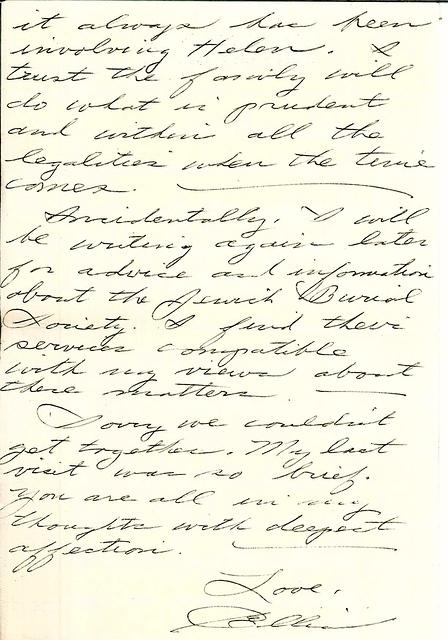 it always has been
involving Helen. I
trust the family will
do what is prudent
and within all the
legalities when the time
comes.
Incidentally, I will
be writing again later
for advice and information
about the Jewish Burial
Society. I find their
services compatible
with my views about
these matters
Sorry we couldn't
get together. My last
visit was so brief.
You are all in my
thoughts with deepest
affection.
Love,